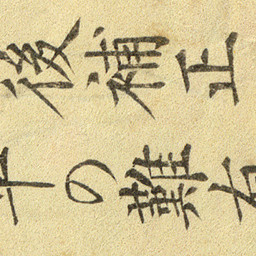 後補正
の難